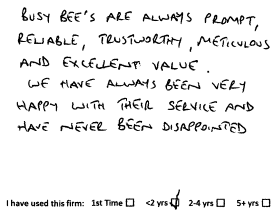 BUSY BEE'S ARE ALWAYS PROMPT,
RELIABLE, TRUSTWORTHY, METICULOUS
AND EXCELLENT VALUE.
WE HAVE ALWAYS BEEN VERY
HAPPY WITH THEIR SERVICE AND
HAVE NEVER BEEN DISAPPOINTED
I have used this firm: 1st Time ☐ <2 yrs ☑ 2-4 yrs ☐ 5+ yrs ☐